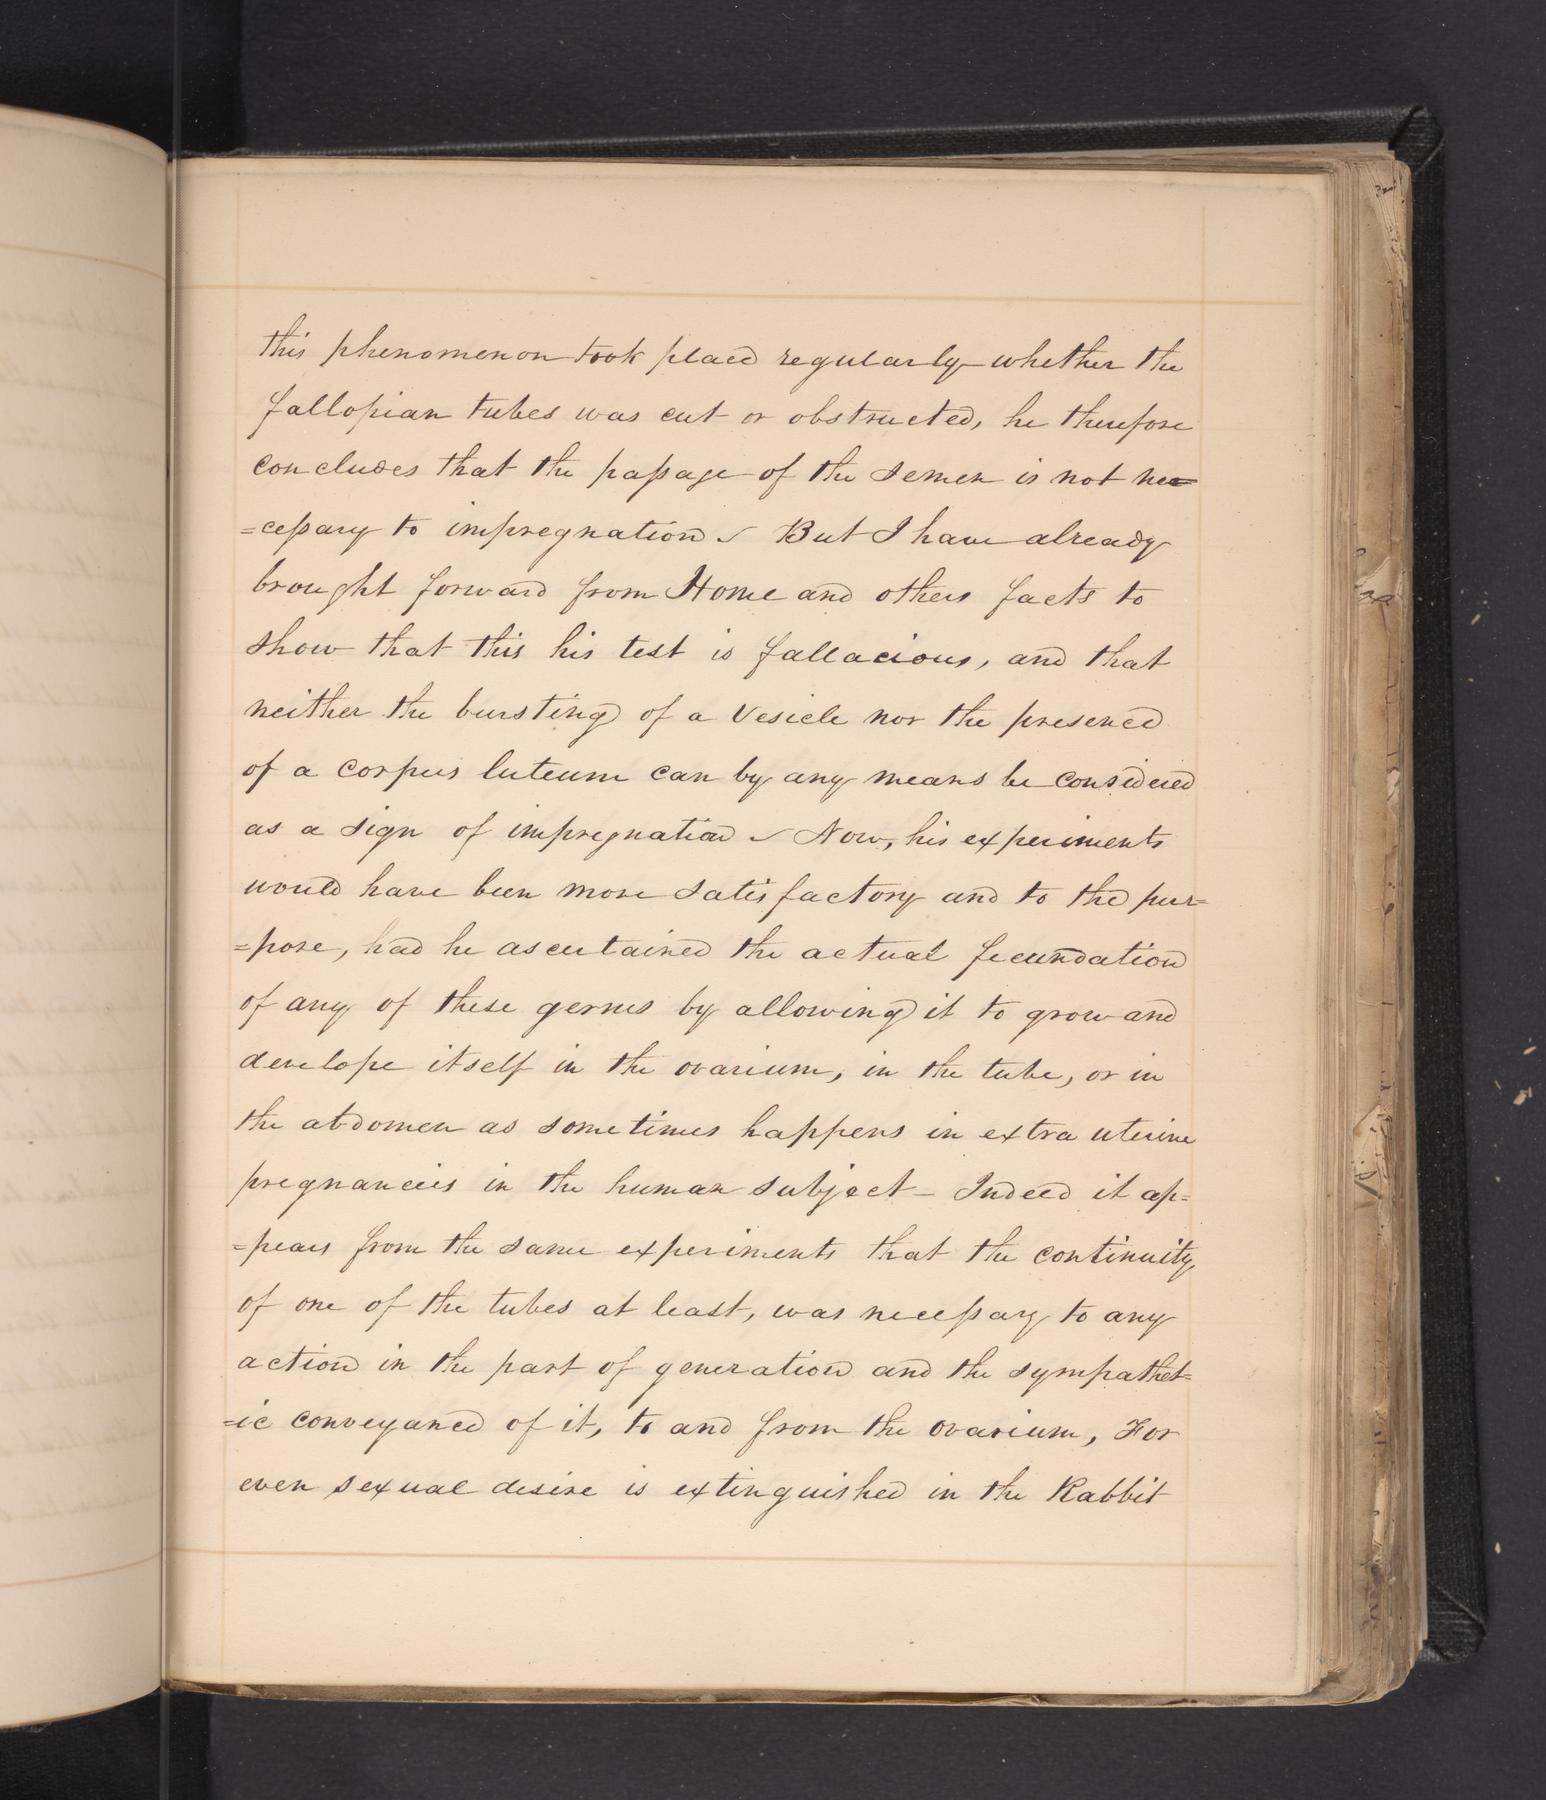 this phenomenon took place regularly whether the
fallopian tubes was cut or obstructed, he therefore
concludes that the passage of the semen is not ne=
=cessary to impregnation - But I have already
brought forward from Home and others facts to
show that this his test is fallacious, and that
neither the bursting of a Vesicle nor the presence
of a corpus luteum can by any means be considered
as a sign of impregnation - Now, his experiments
would have been more satisfactory and to the pur=
=pose, had he ascertained the actual fecundation
of any of these germs by allowing it to grow and
develope itself in the ovarium, in the tube, or in
the abdomen as sometimes happens in extra uterine
pregnancies in the human subject - Indeed it ap=
=pears from the same experiments that the continuity
of one of the tubes at least, was necessary to any
action in the part of generation and the sympathet=
=ic conveyance of it, to and from the ovarium, For
even sexual desire is extinguished in the Rabbit